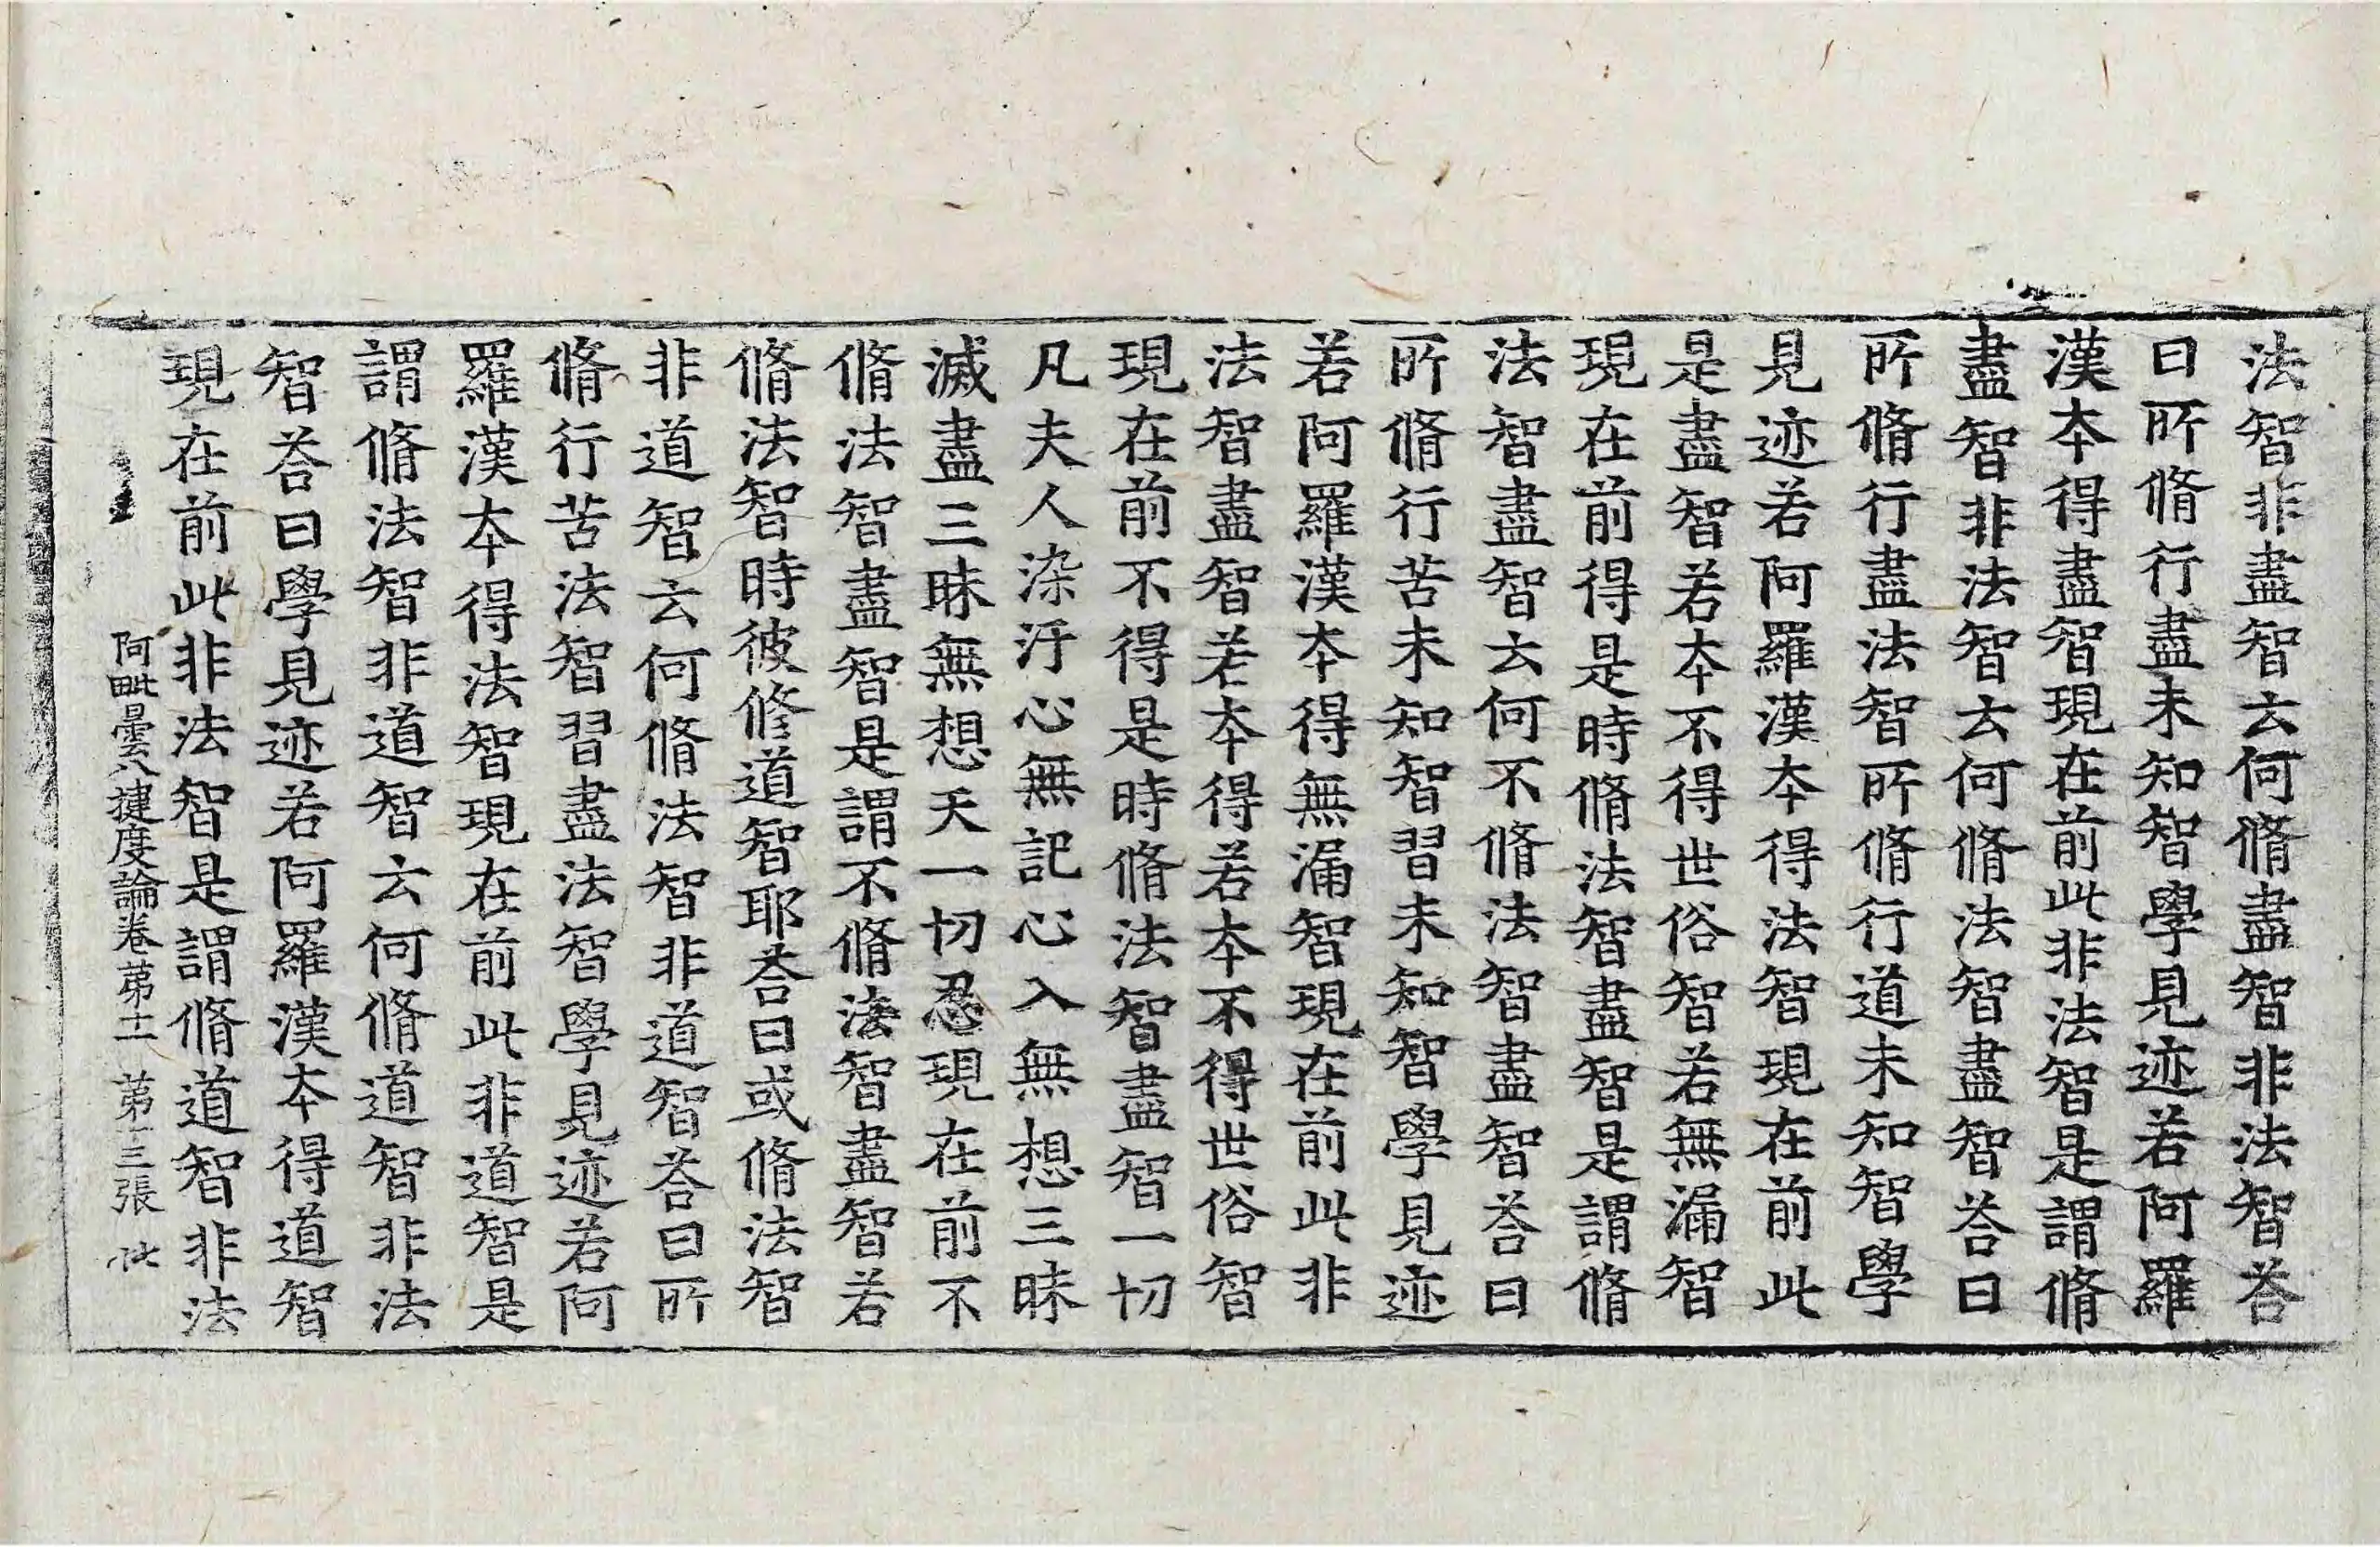 法智非盡智云何脩盡智非法智荅
曰所脩行盡未知智學見迹若阿羅
漢夲得盡智現在前此非法智是謂脩
盡智非法智云何脩法智盡智荅曰
所脩行盡法智所脩行道未知智學
見迹若阿羅漢夲得法智現在前此
是盡智若夲不得世俗智若無漏智
現在前得是時脩法智盡智是謂脩
法智盡智云何不脩法智盡智荅曰
所脩行苦未知智習未知智學見迹
若阿羅漢夲得無漏智現在前此非
法智盡智若夲得若夲不得世俗智
現在前不得是時脩法智盡智一切
凡夫人染汙心無記心入無想三昧
滅盡三昧無想天一切忍現在前不
脩法智盡智是謂不脩法智盡智若
脩法智時彼修道智耶荅曰或脩法智
非道智云何脩法智非道智荅曰所
脩行苦法智習盡法智學見迹若阿
羅漢夲得法智現在前此非道智是
謂脩法智非道智云何脩道智非法
智荅曰學見迹若阿羅漢夲得道智
現在前此非法智是謂脩道智非法
阿毗曇八揵度論卷苐十二 苐三張